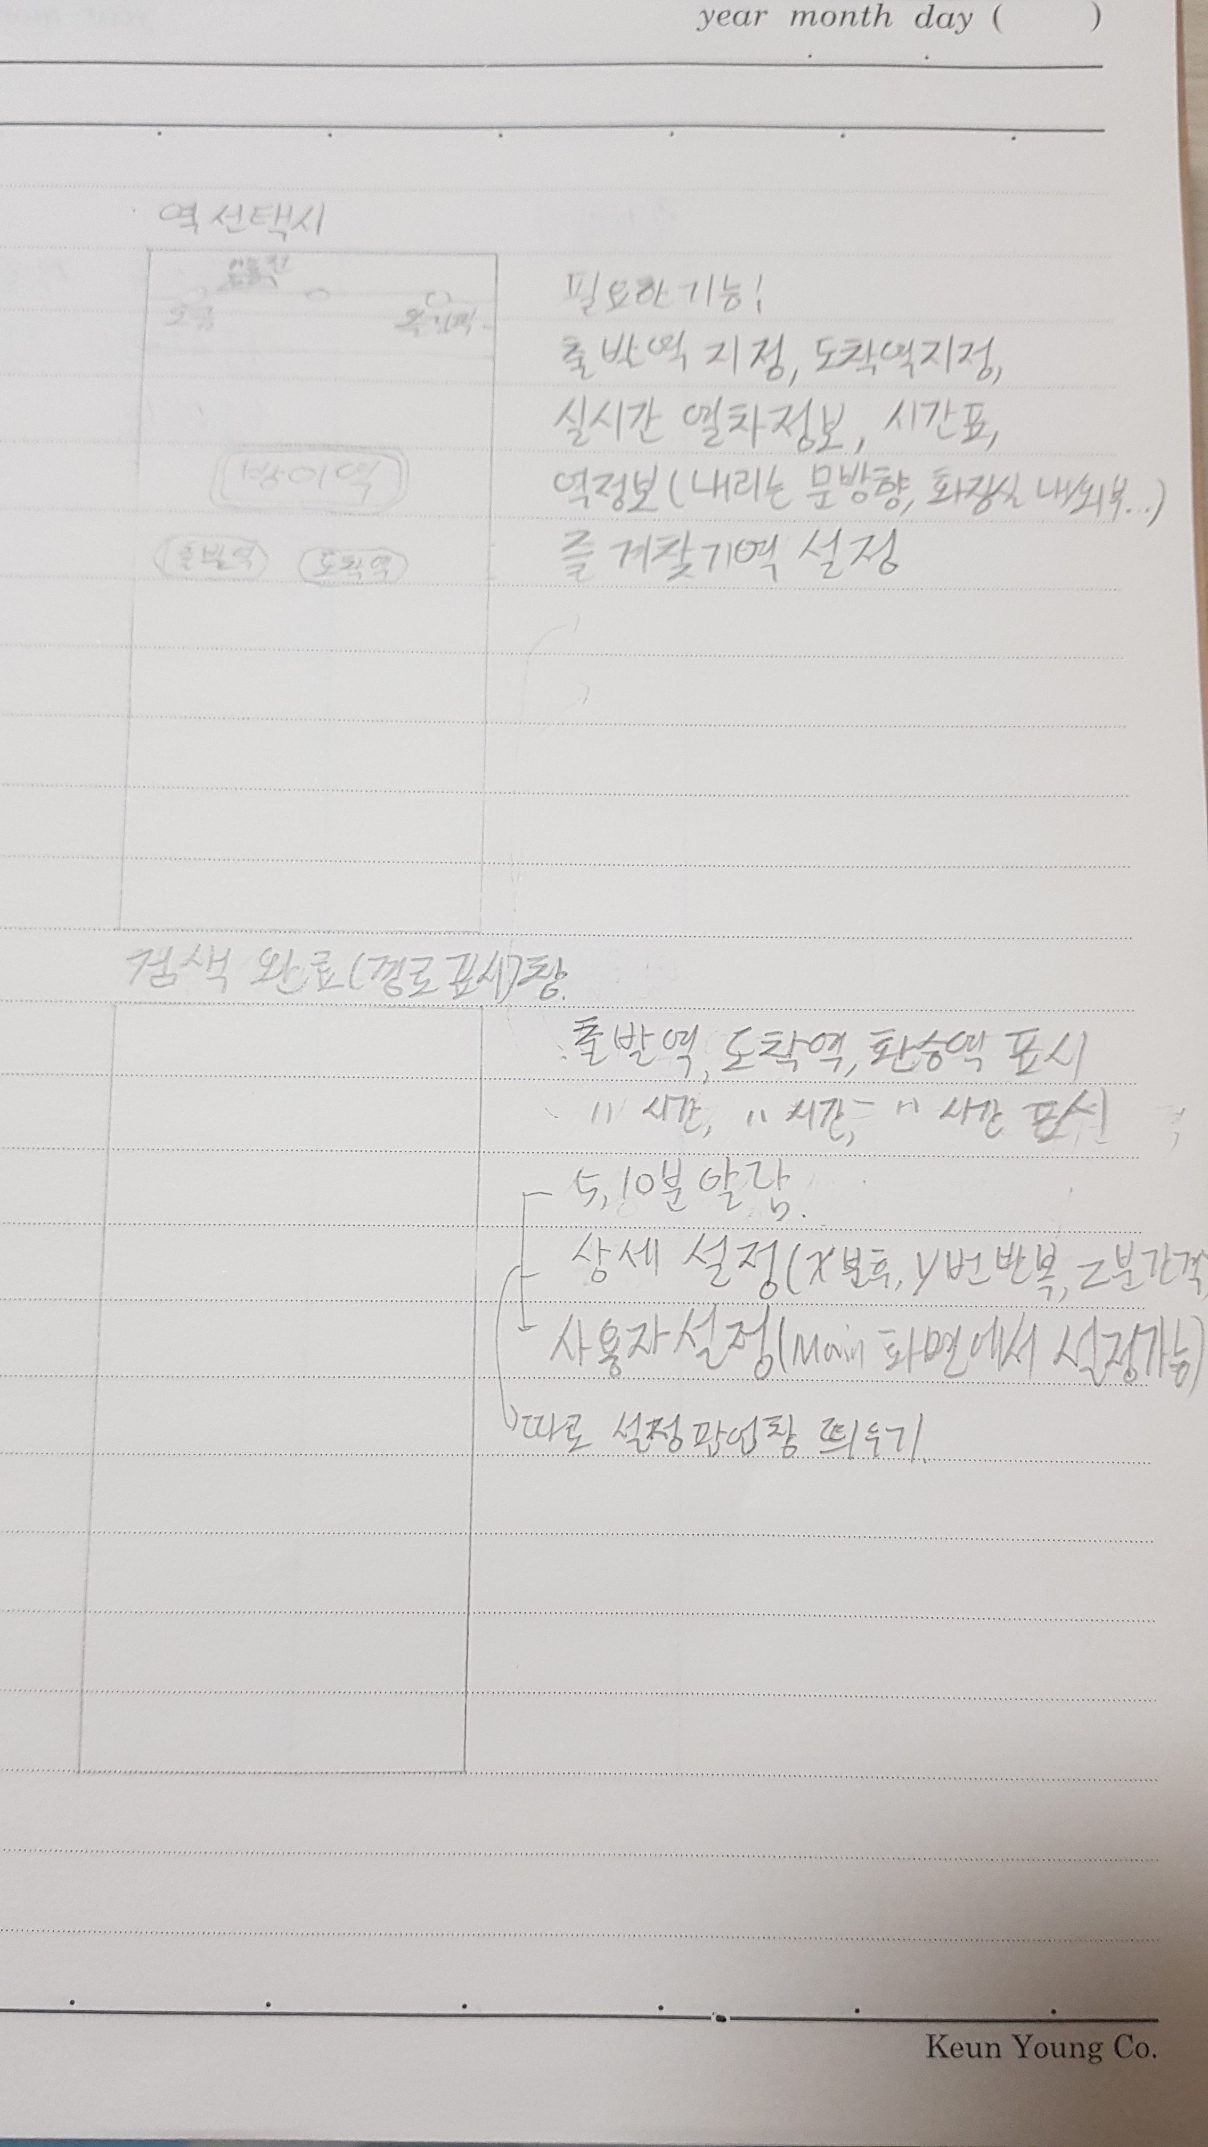 year month day ( )
역 선택시
오금
방이역
출발역 도착역
필요한 기능!
출발역 지정, 도착역지정,
실시간 열차정보, 시간표,
역정보(내리는 문방향, 화장실 내/외부...)
즐겨찾기역 설정
검색 완료(경로표시)창.
출발역, 도착역, 환승역 표시
〃 시간, 〃 시간, 〃 시간 표시
5, 10분 알람.
상세 설정(X분후, Y번 반복, Z분간격,
사용자설정(Main 화면에서 설정가능)
따로 설정팝업창 띄우기.
Keun Young Co.